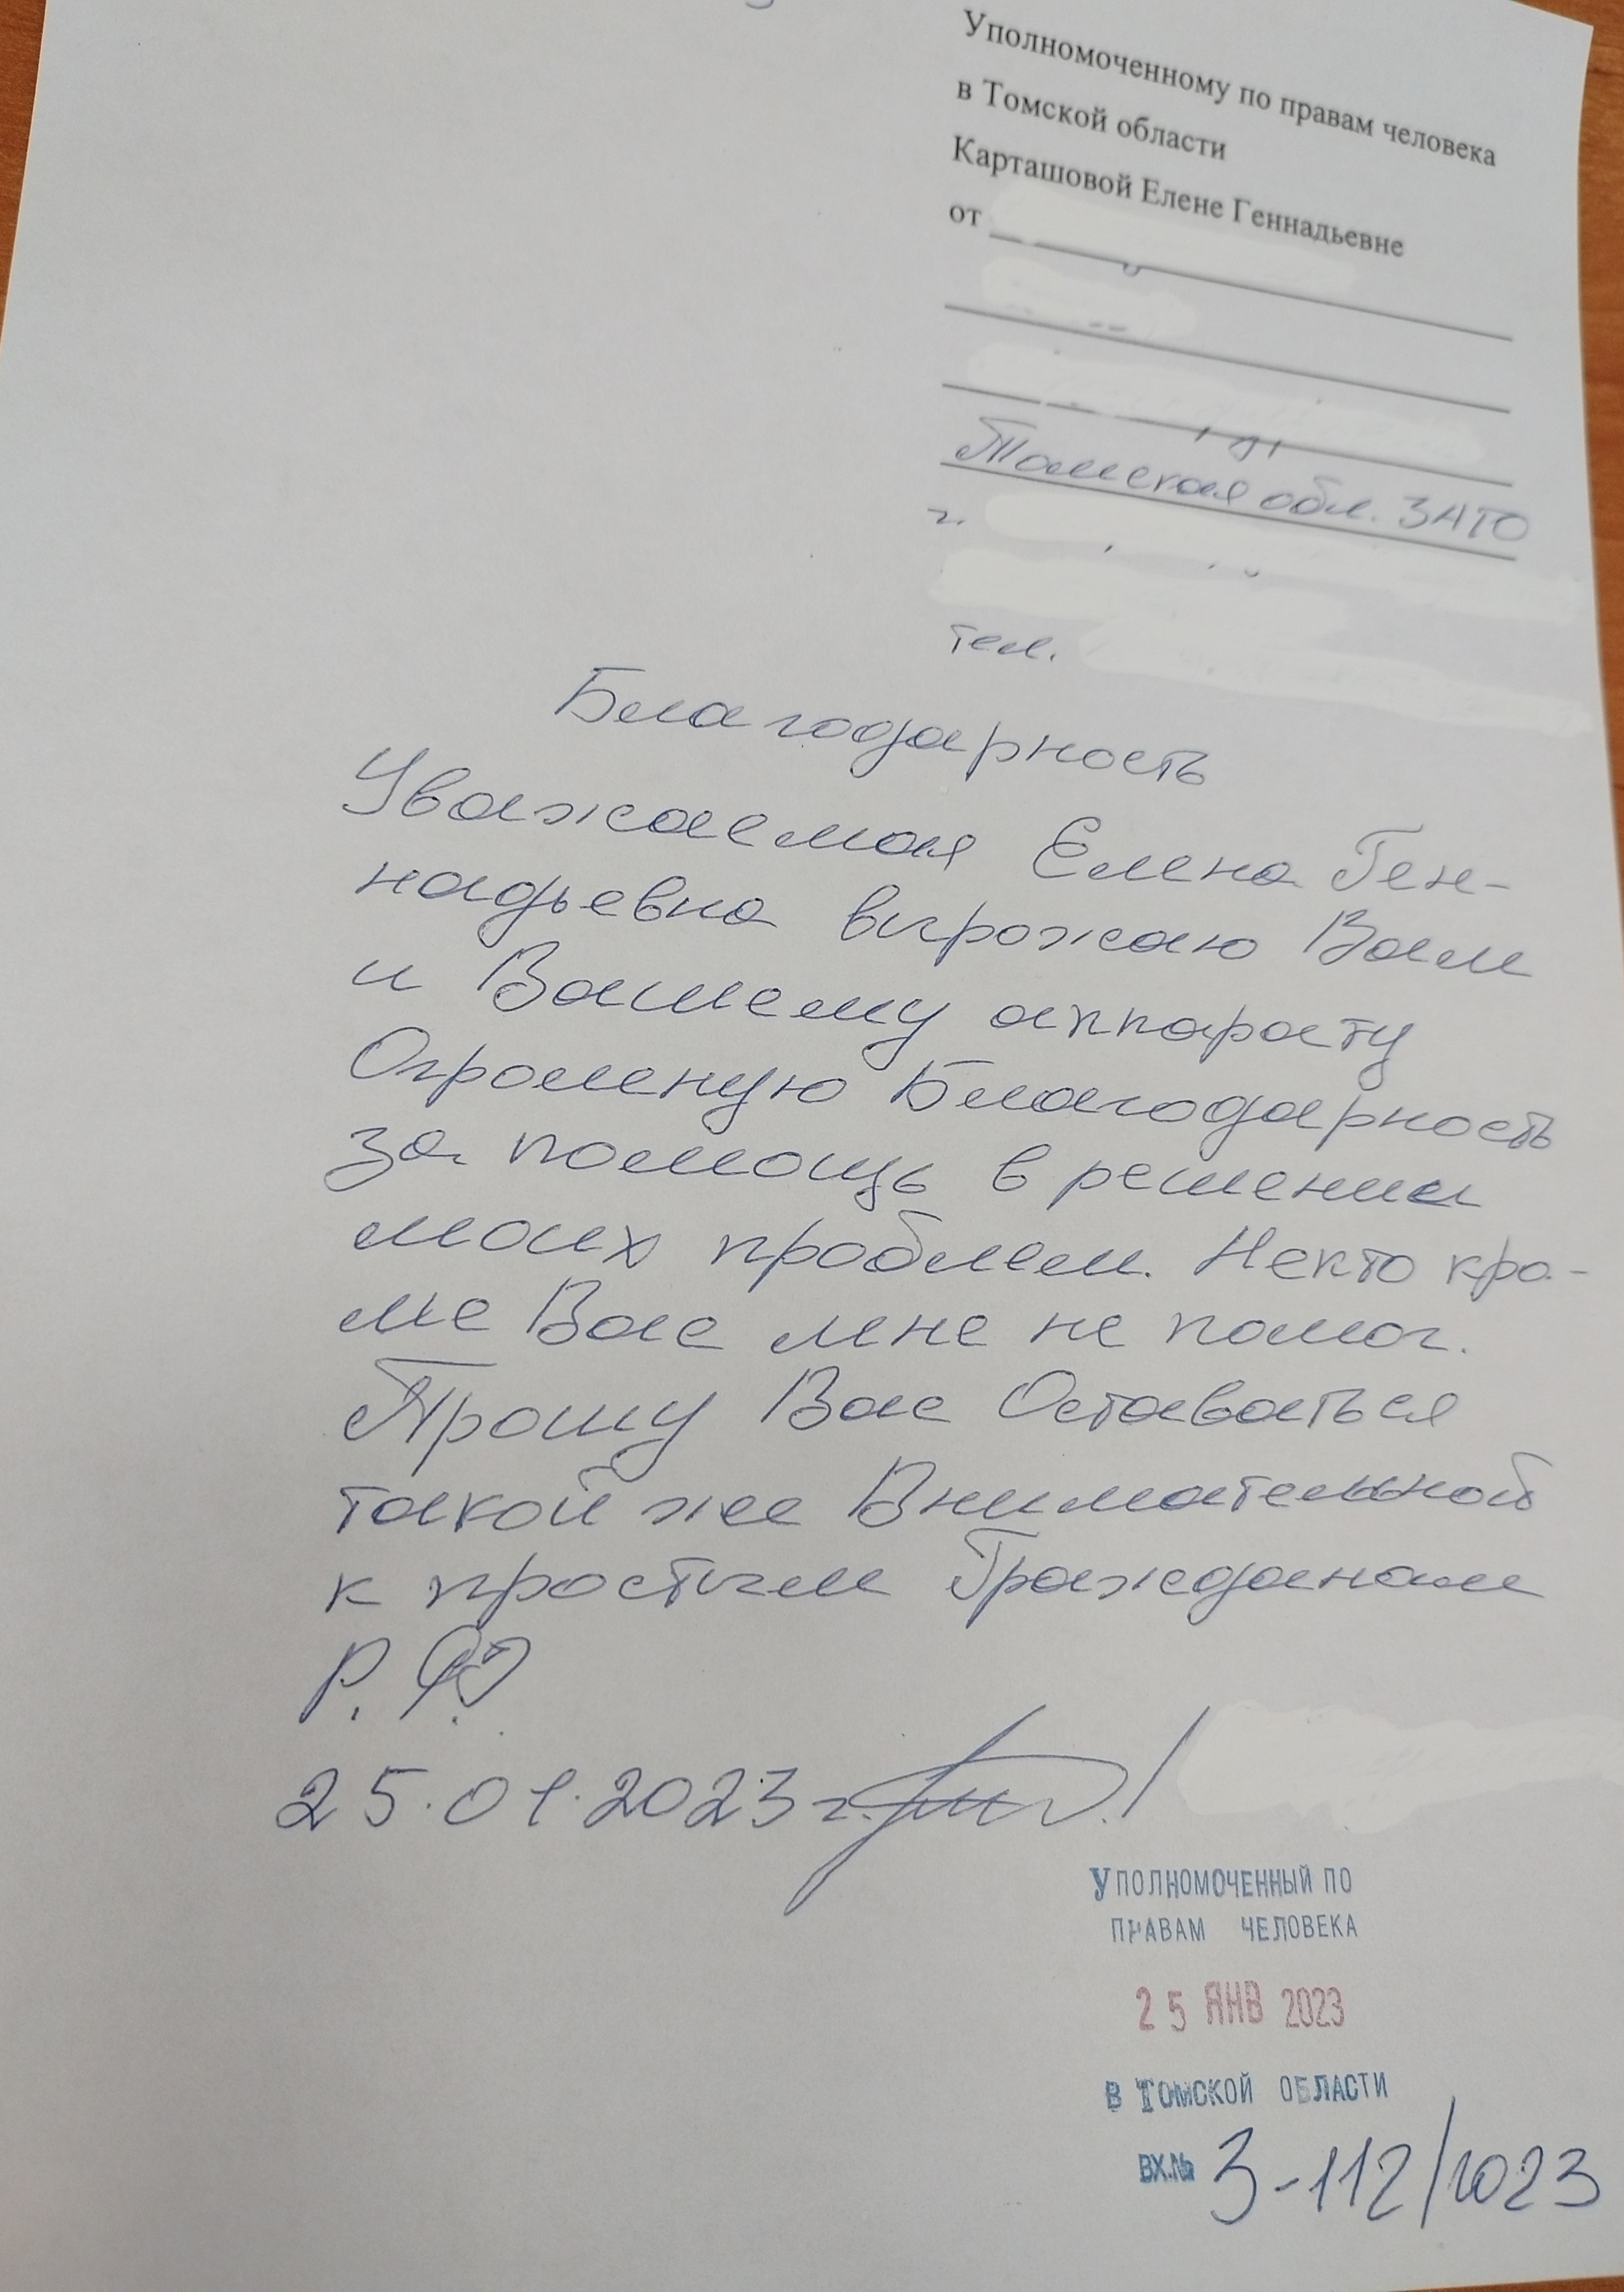 Уполномоченному по правам человека
в Томской области
Карташовой Елене Геннадьевне
от
Томская обл. ЗАТО
г.
тел.
Благодарность
Уважаемая Елена Ген-
надьевна выражаю Вам
и Вашему аппарату
Огроменую Благодарность
за помощь в решении
моих проблем. Некто кро-
ме Вас мне не помог.
Прошу Вас Оставаться
такой же Внимательной
к простым Гражданам
Р.Ф.
25.01.2023 г.
УПОЛНОМОЧЕННЫЙ ПО
ПРАВАМ ЧЕЛОВЕКА
25 ЯНВ 2023
В ТОМСКОЙ ОБЛАСТИ
ВХ.№ З-112/2023